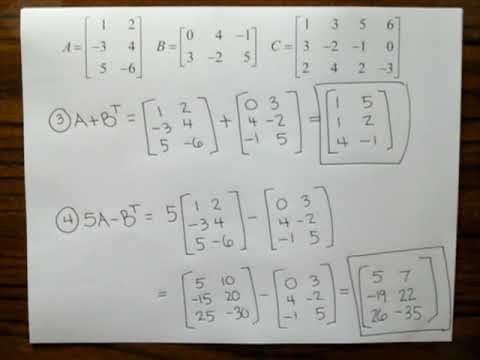 A = [1 2; -3 4; 5 -6] B = [0 4 -1; 3 -2 5] C = [1 3 5 6; 3 -2 -1 0; 2 4 2 -3]
③ A+Bᵀ = [1 2; -3 4; 5 -6] + [0 3; 4 -2; -1 5] = [1 5; 1 2; 4 -1]
④ 5A-Bᵀ = 5[1 2; -3 4; 5 -6] - [0 3; 4 -2; -1 5]
= [5 10; -15 20; 25 -30] - [0 3; 4 -2; -1 5] = [5 7; -19 22; 26 -35]